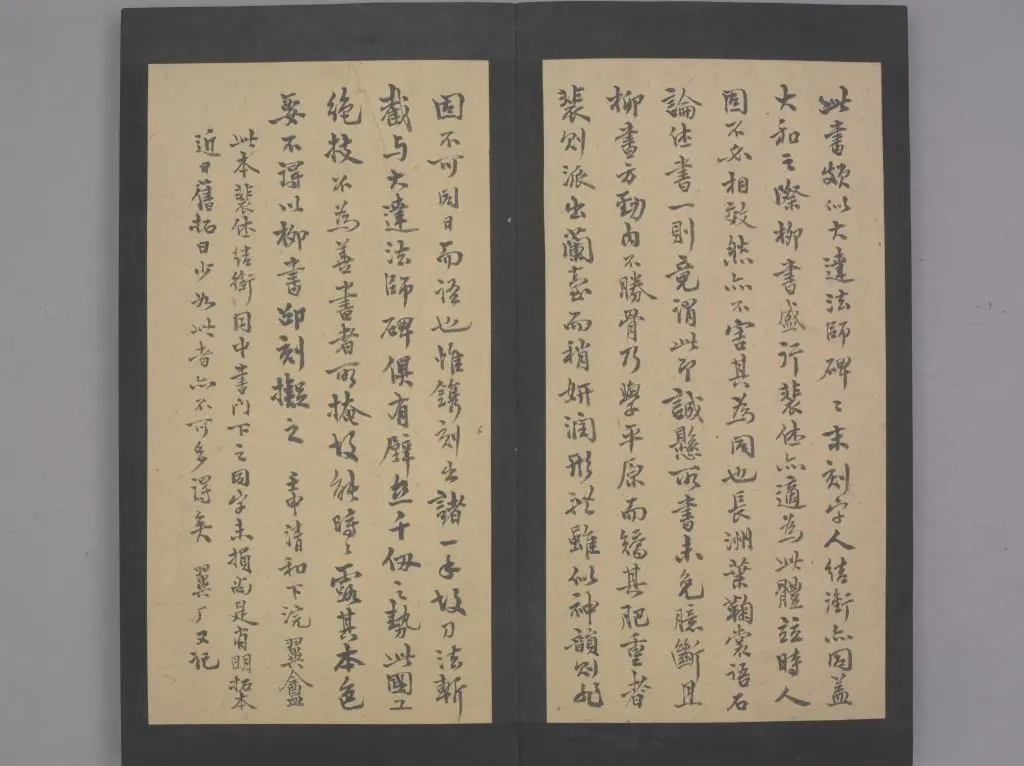 此書頗似大達法師碑〻末刻字人結銜亦同蓋
大和之際柳書盛行裴休亦適為此體竝時人
固不必相效然亦不害其為同也長洲葉鞠裳語石
論休書一則竟謂此即誠懸所書未免臆斷且
柳書方勁內不勝骨乃學平原而矯其肥重者
裴則派出蘭臺而稍妍潤形雖似神韻則殊
固不可同日而語也惟鐫刻出諸一手故刀法斬
截与大達法師碑俱有壁立千仞之勢此國工
絕技不為善書者所掩故能時〻露其本色
要不得以柳書邵刻擬之 壬申清和下浣 翼盦
此本裴休結銜同中書門下之同字未損尚是有明拓本
近日舊拓日少如此者亦不可多得矣 翼厂又記